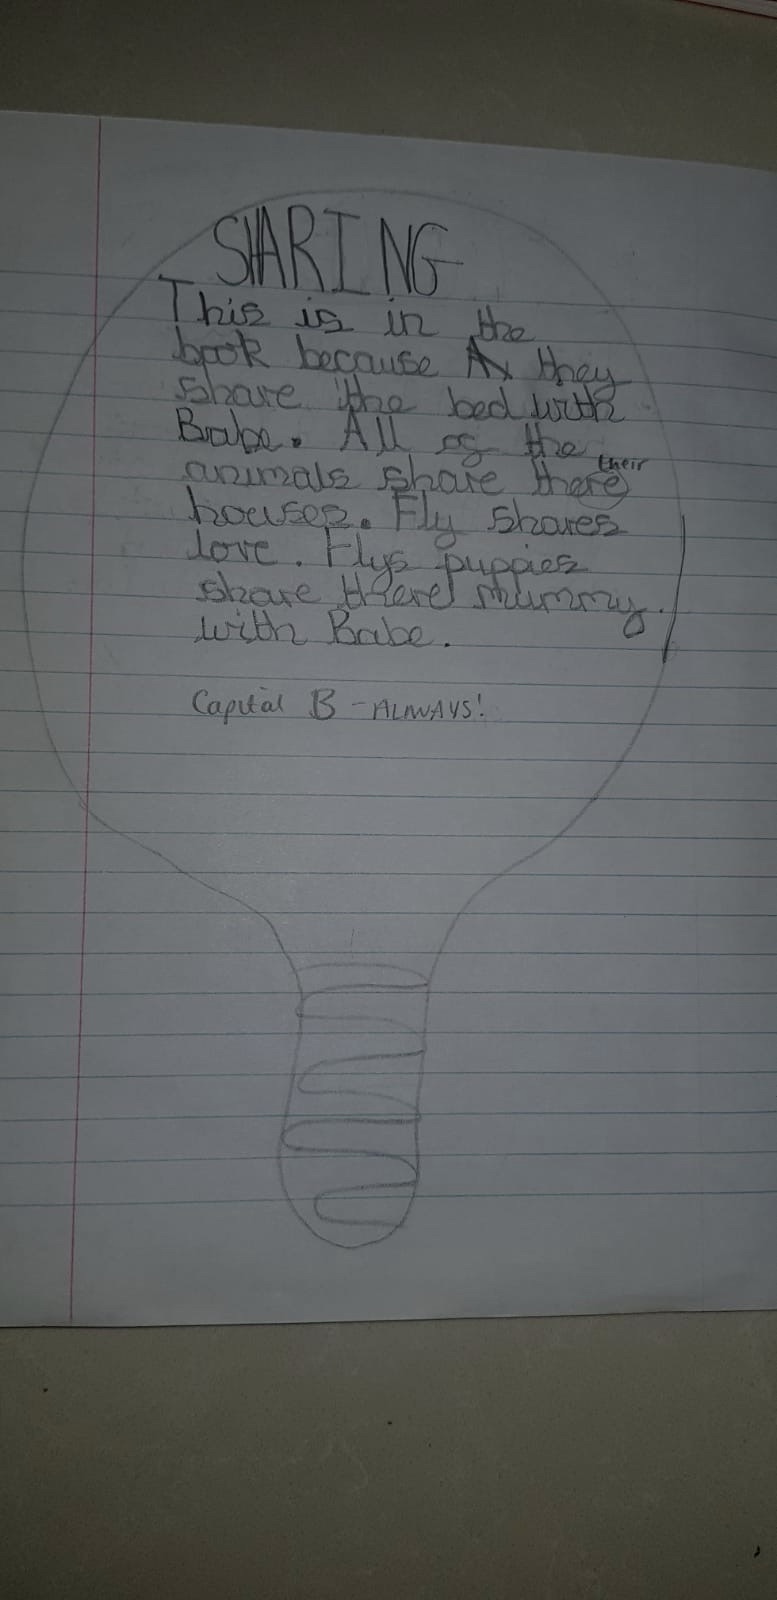 SHARING
This is in the
book because they
share the bed with
Babe. All of the
their
animals share there
houses. Fly shares
love. Flys puppies
share there mummy.
with Babe.
Capital B - ALWAYS!